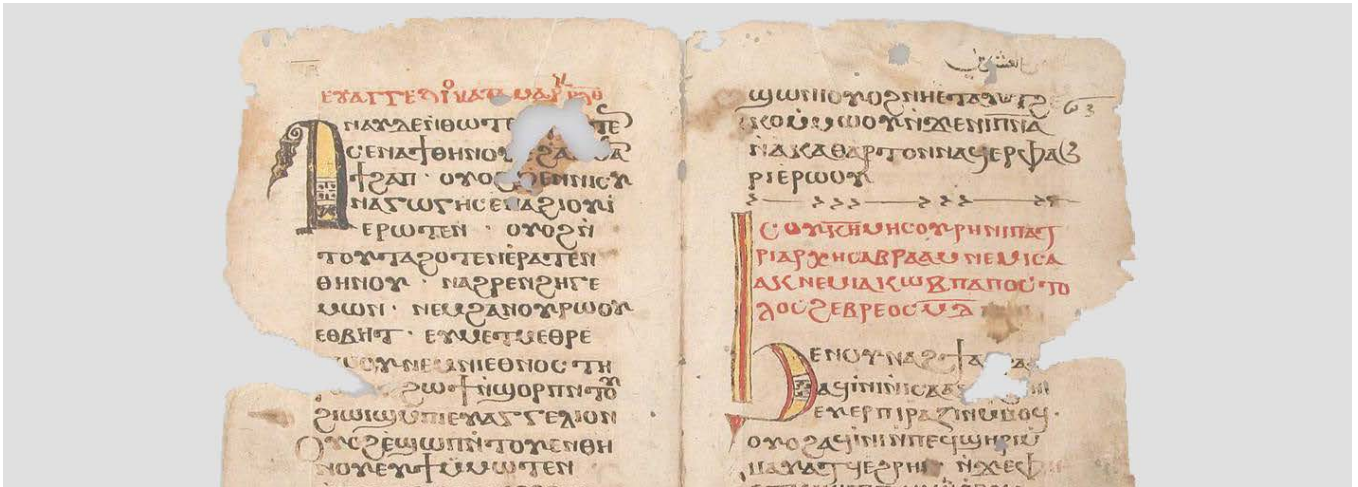 ⲉⲩⲁⲅⲅⲉⲗⲓⲟ ⲕⲁⲧⲁ
ⲁⲛⲁⲩⲇⲉⲛⲑⲱⲧⲉ
ⲥⲉⲛⲁϯⲑⲏⲛⲟⲩ
ϯϩⲁⲡ · ⲟⲩⲟϩϧⲉⲛⲛⲓⲥⲩ
ⲛⲁⲅⲱⲅⲏⲥⲉⲛⲁϩⲓⲟⲩⲓ
ⲉⲣⲱⲧⲉⲛ · ⲟⲩⲟϩⲛ̀
ⲧⲟⲩⲧⲁϩⲟⲧⲉⲛⲉ̀ⲣⲁⲧⲉⲛ
ⲑⲏⲛⲟⲩ · ⲛⲁϩⲣⲉⲛϩⲏⲅⲉ
ⲙⲱⲛ · ⲛⲉⲙϩⲁⲛⲟⲩⲣⲱⲟⲩ
ⲉⲑⲃⲏⲧ · ⲉⲩⲙⲉⲧⲙⲉⲑⲣⲉ
ⲛⲉⲙⲛⲓⲉⲑⲛⲟⲥ ⲧⲏ
ϩⲱϯⲛ̀ϣⲟⲣⲡⲛ̀ⲧⲟⲩ
ϩⲓⲱⲓϣⲙ̀ⲡⲓⲉⲩⲁⲅⲅⲉⲗⲓⲟⲛ
ⲟⲩⲟϩⲉ̀ϣⲱⲡⲛ̀ⲧⲟⲩⲉⲛⲑⲏ
ⲛⲟⲩⲉⲩϯⲙ̀ⲙⲱⲧⲉⲛ
ϣⲱⲛⲓⲟⲩⲟϩⲛⲏⲉⲧⲁⲩⲧϩⲉ
ⲕⲟⲙ̀ⲙⲱⲟⲩⲛ̀ϫⲉⲛⲓⲡ̅ⲛ̅ⲁ̅
ⲛ̀ⲁⲕⲁⲑⲁⲣⲧⲟⲛⲛⲁϥⲉⲣⲫⲁϧ
ⲣⲓⲉⲣⲱⲟⲩ
ⲥⲟⲩⲕ̅ⲏ̅ⲙⲏⲥⲟⲩⲣⲏⲛⲓⲡⲁⲧ
ⲣⲓⲁⲣⲭⲏⲥⲁⲃⲣⲁⲁⲙⲛⲉⲙⲓⲥⲁ
ⲁⲕⲛⲉⲙⲓⲁⲕⲱⲃⲡⲁⲡⲟⲥⲧⲟ
ⲗⲟⲥϩⲉⲃⲣⲉⲟⲥⲙ̅ⲁ̅
ϧⲉⲛⲟⲩⲛⲁϩϯ
ⲁϥⲓⲛⲓⲛ̀ⲓⲥⲁⲁⲕ
ⲉⲩⲉⲣⲡⲓⲣⲁⲍⲓⲛⲙ̀ⲙⲟϥ ·
ⲟⲩⲟϩⲁϥⲓⲛⲓⲙ̀ⲡⲉϥϣⲏⲣⲓⲙ̀
ⲙⲁⲩⲁⲧϥⲉϩⲣⲏⲓ ⲛ̀ϫⲉⲫⲏ